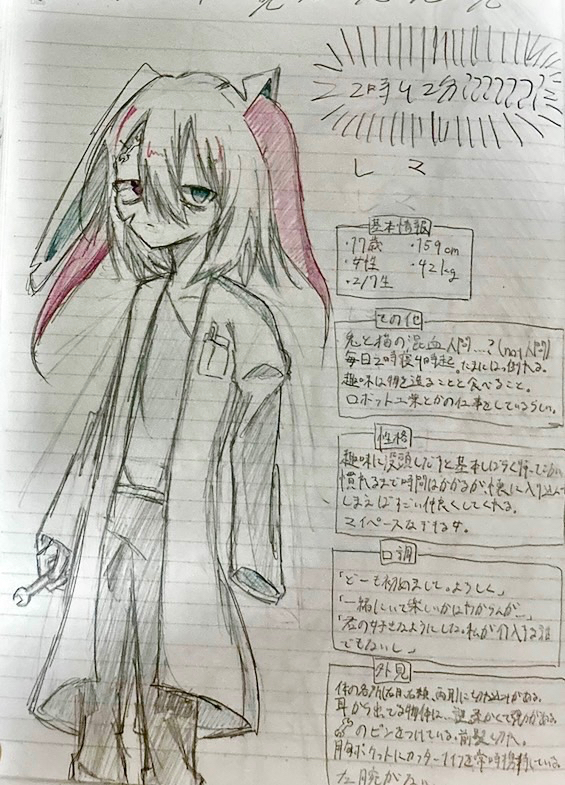 2時42分??????
レマ
基本情報
・17歳 ・159cm
・女性 ・42kg
・2/7生
その他
兎と猫の混血人間…?(not人間)
毎日2時寝4時起。たまにぶっ倒れる。
趣味は物を造ることと食べること。
ロボット工業とかの仕事をしているらしい。
性格
趣味に没頭しだすと基本しばらく帰ってこない
慣れるまで時間はかかるが、懐に入り込んで
しまえばすごい仲良くしてくれる。
マイペースなすぎる。
口調
「どーも初めまして。よろしく」
「一緒にいて楽しいかはわからんが…」
「君の好きなようにしな。私が介入する
でもないし」
外見
体の各所に切り込みがある。
耳から出てる物体は…柔かくて弾力がある。
のピンをつけている。前髪
胸ポケットにカッターナイフを常時携帯している。
左腕がない